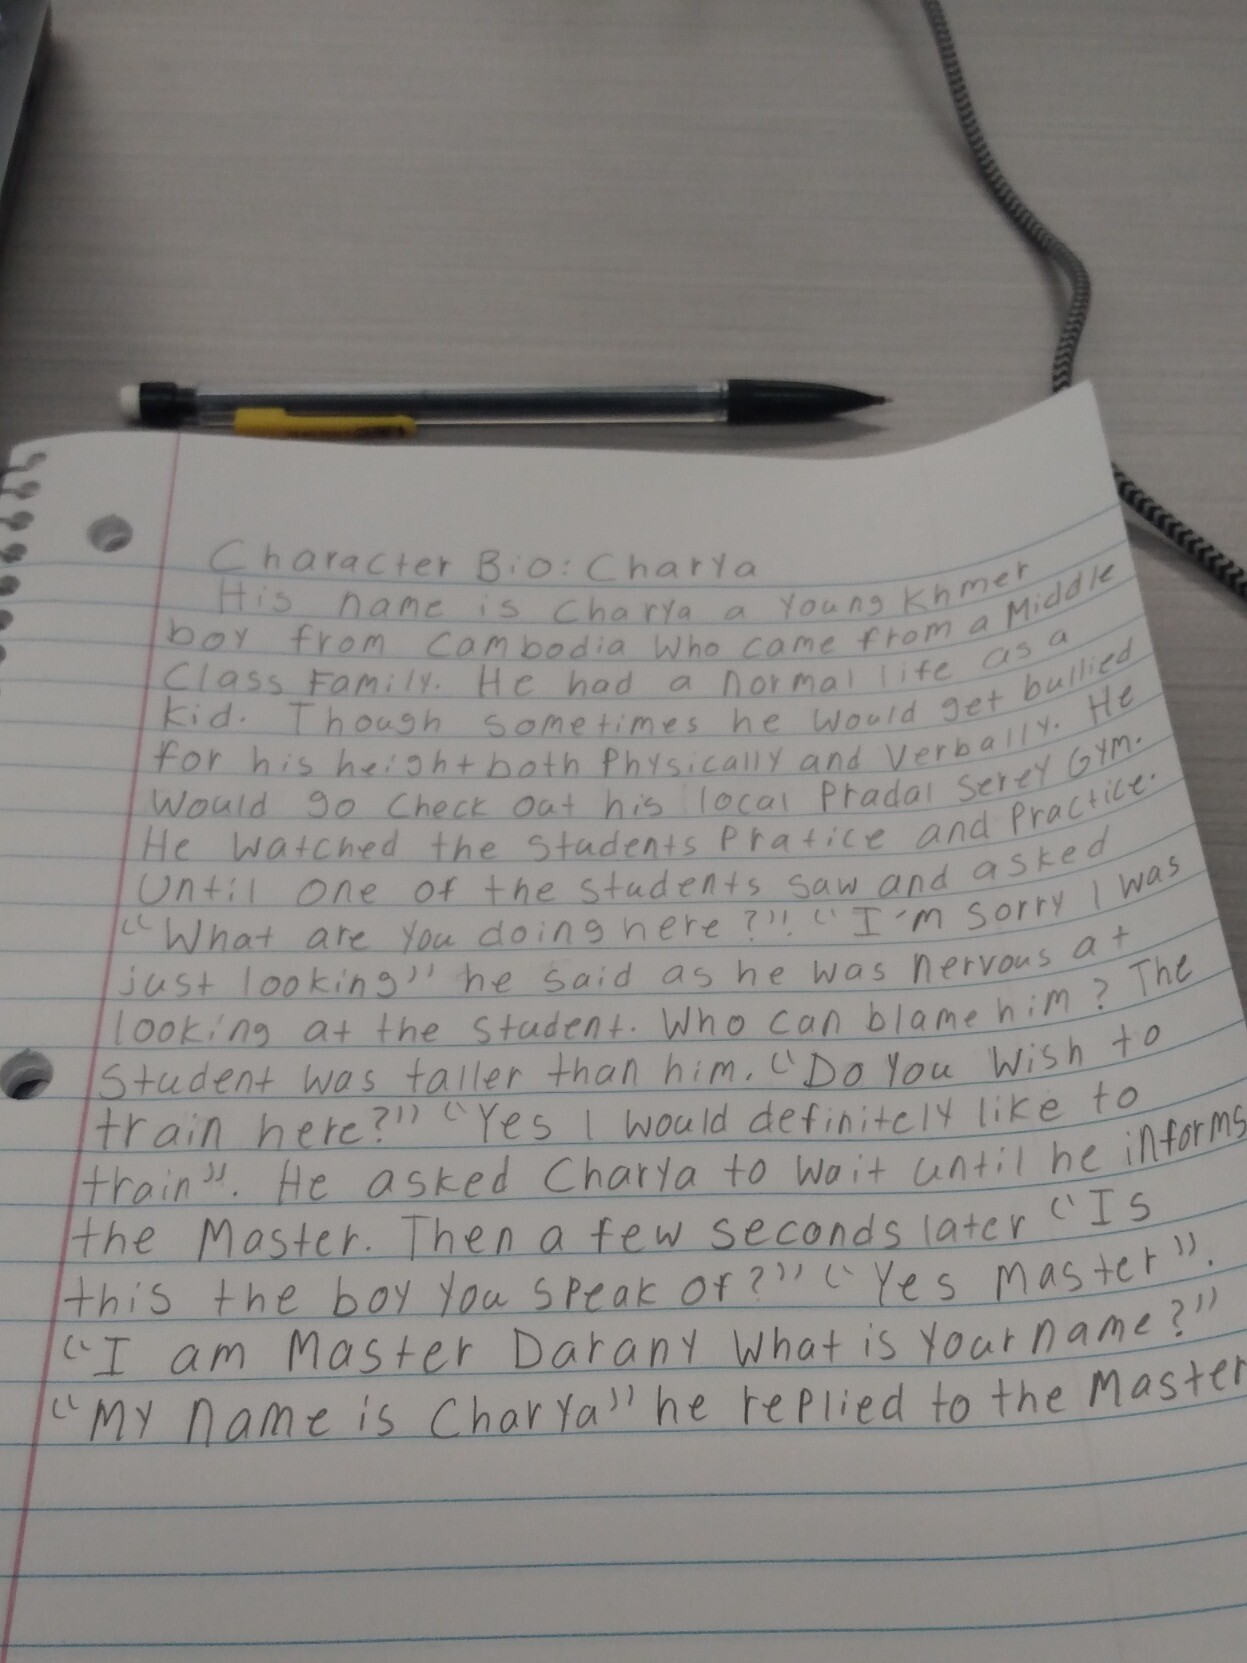 Character Bio: Charya
His name is Charya a young Khmer
boy from Cambodia who came from a Middle
Class Family. He had a normal life as a
kid. Though sometimes he would get bullied
for his height both Physically and Verbally. He
Would go check out his local Pradal Serey Gym.
He watched the students Pratice and Practice.
Until one of the students saw and asked
"What are you doing here?". "I'm sorry I was
just looking" he said as he was nervous at
looking at the student. Who can blame him? The
Student was taller than him. "Do you wish to
train here?" "Yes I would definitely like to
train". He asked Charya to wait until he informs
the Master. Then a few seconds later "Is
this the boy you speak of?" "Yes Master".
"I am Master Darany What is your name?"
"My name is Charya" he replied to the Master